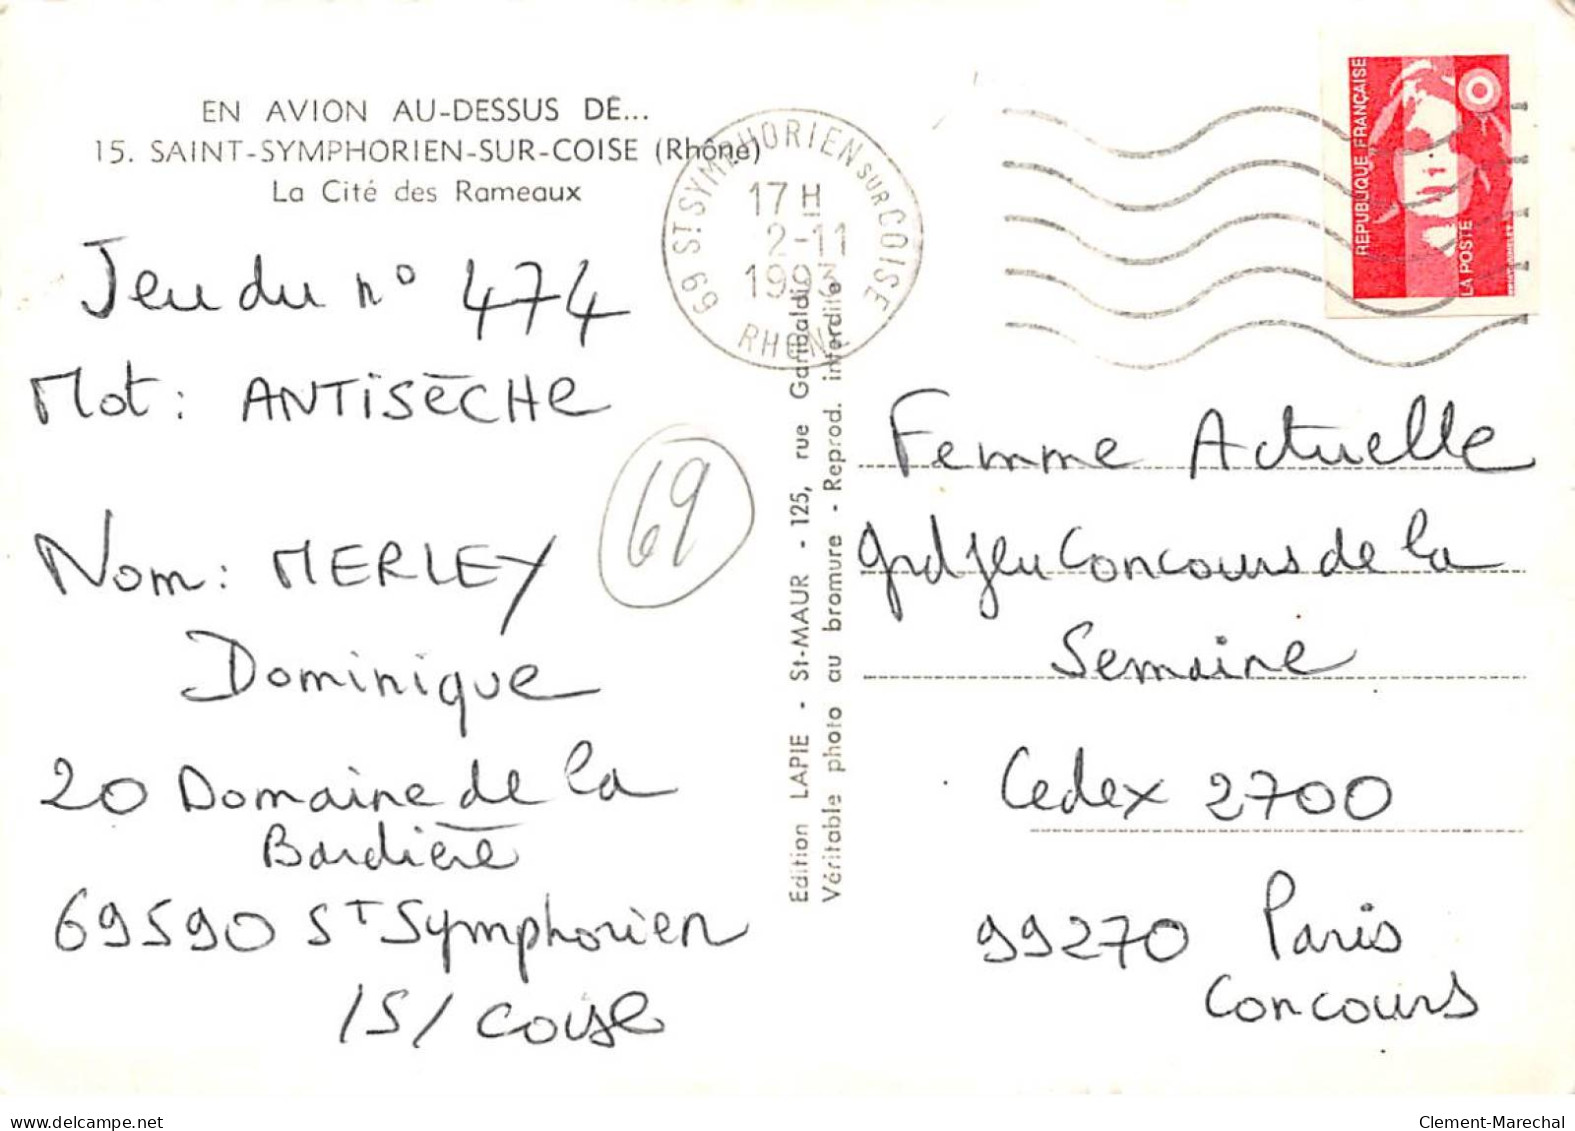 EN AVION AU-DESSUS DE...
15. SAINT-SYMPHORIEN-SUR-COISE (Rhône)
La Cité des Rameaux
Jeu du n° 474
Mot : ANTISÈCHE
69
Nom : MERLEY
Dominique
20 Domaine de la
Bardière
69590 ST Symphorien
/S/ Coise
69 ST SYMPHORIEN SUR COISE
17 H
2-11
1993
RHONE
Edition LAPIE - St-MAUR - 125, rue Garibaldi
Véritable photo au bromure - Reprod. interdite
RÉPUBLIQUE FRANÇAISE
LA POSTE
Femme Actuelle
grd Jeu Concours de la
Semaine
Cedex 2700
99270 Paris
Concours
www.delcampe.net
Clement-Marechal